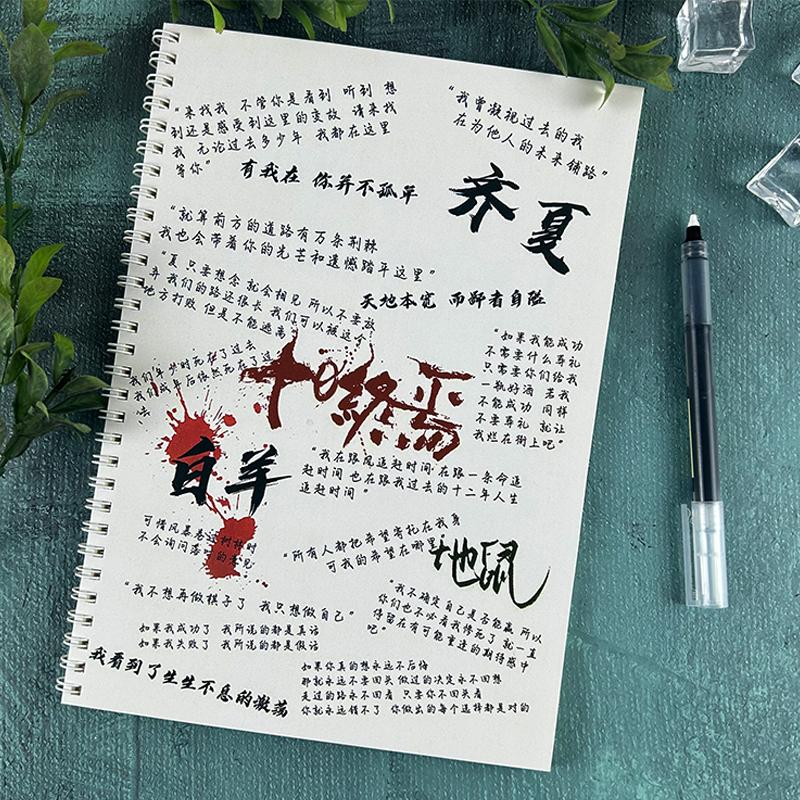 “来找我 不管你是看到 听到 想
到还是感受到这里的变故 请来找
我 无论过去多少年 我都在这里
等你”
“我曾凝视过去的我
在为他人的未来铺路”
有我在 你并不孤单
齐夏
“就算前方的道路有万条荆棘
我也会带着你的光芒和遗憾踏平这里”
“夏 只要想念 就会相见 所以不要放
弃 我们的路还很长 我们可以被这个
地方打败 但是不能逃离
天地本宽 而鄙者自隘
“如果我能成功
不需要什么葬礼
只需要你们给我
一瓶好酒 若我
不能成功 同样
不要葬礼 就让
我烂在街上吧”
我们年少时死在了过去
我们成年后依然死在了过
去
十日終焉
白羊
“我在跟风追赶时间 在跟一条命追
赶时间 也在跟我过去的十二年人生
追赶时间”
可惜风暴卷过树林时
不会询问落叶的意见
“所有人都把希望寄托在我身
可我的希望在哪里
地鼠
“我不想再做棋子了 我只想做自己”
“我不确定自己是否能赢 所以
你们也不必看我惨死了 就一直
停留在有可能重逢的期待感中
吧”
如果我成功了 我所说的都是真话
如果我失败了 我所说的都是假话
我看到了生生不息的激荡
如果你真的想永远不后悔
那就永远不要回头 做过的决定永不回想
走过的路永不回看 只要你不回头看
你就永远错不了 你做出的每个选择都是对的